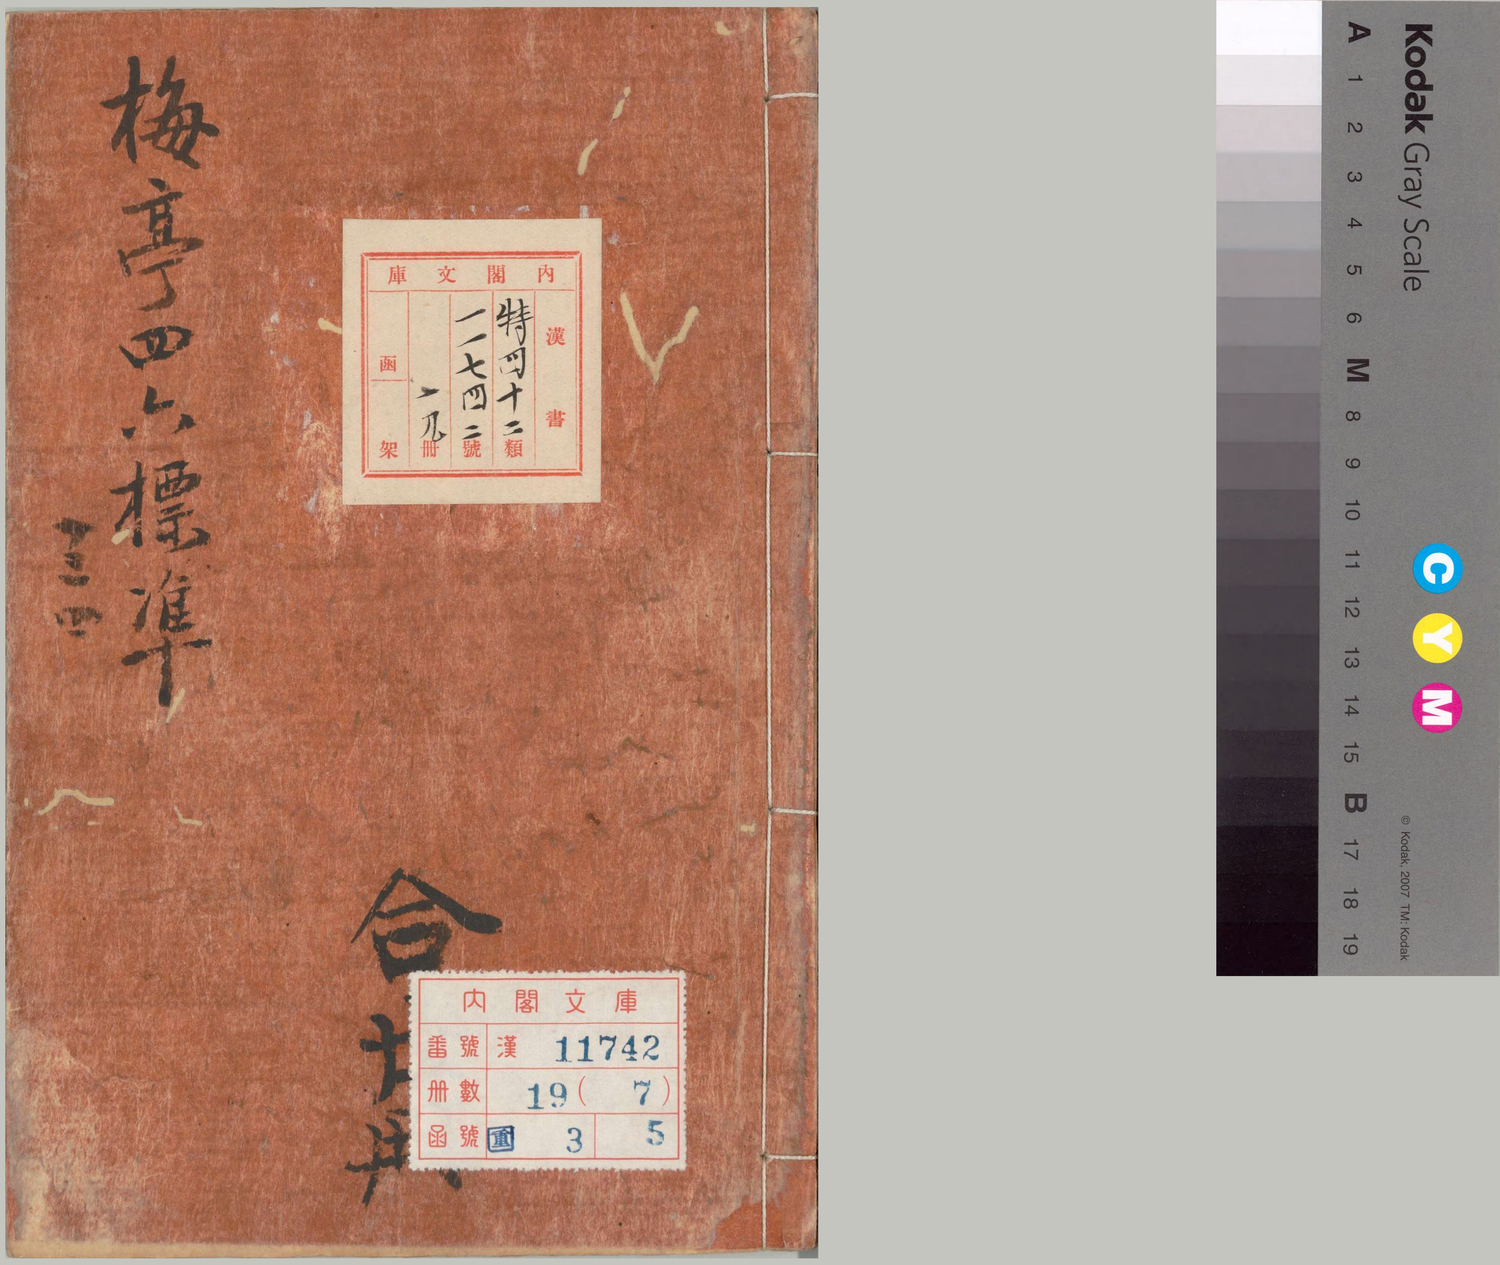 梅亭四六標準
三四
内閣文庫
漢書
特四十二類
一一七四二號
一九冊
函
架
合
内閣文庫
番號 漢 11742
冊數 19( 7)
函號 重 3 5
Kodak Gray Scale
A 1 2 3 4 5 6 M 8 9 10 11 12 13 14 15 B 17 18 19
C Y M
© Kodak, 2007 TM: Kodak